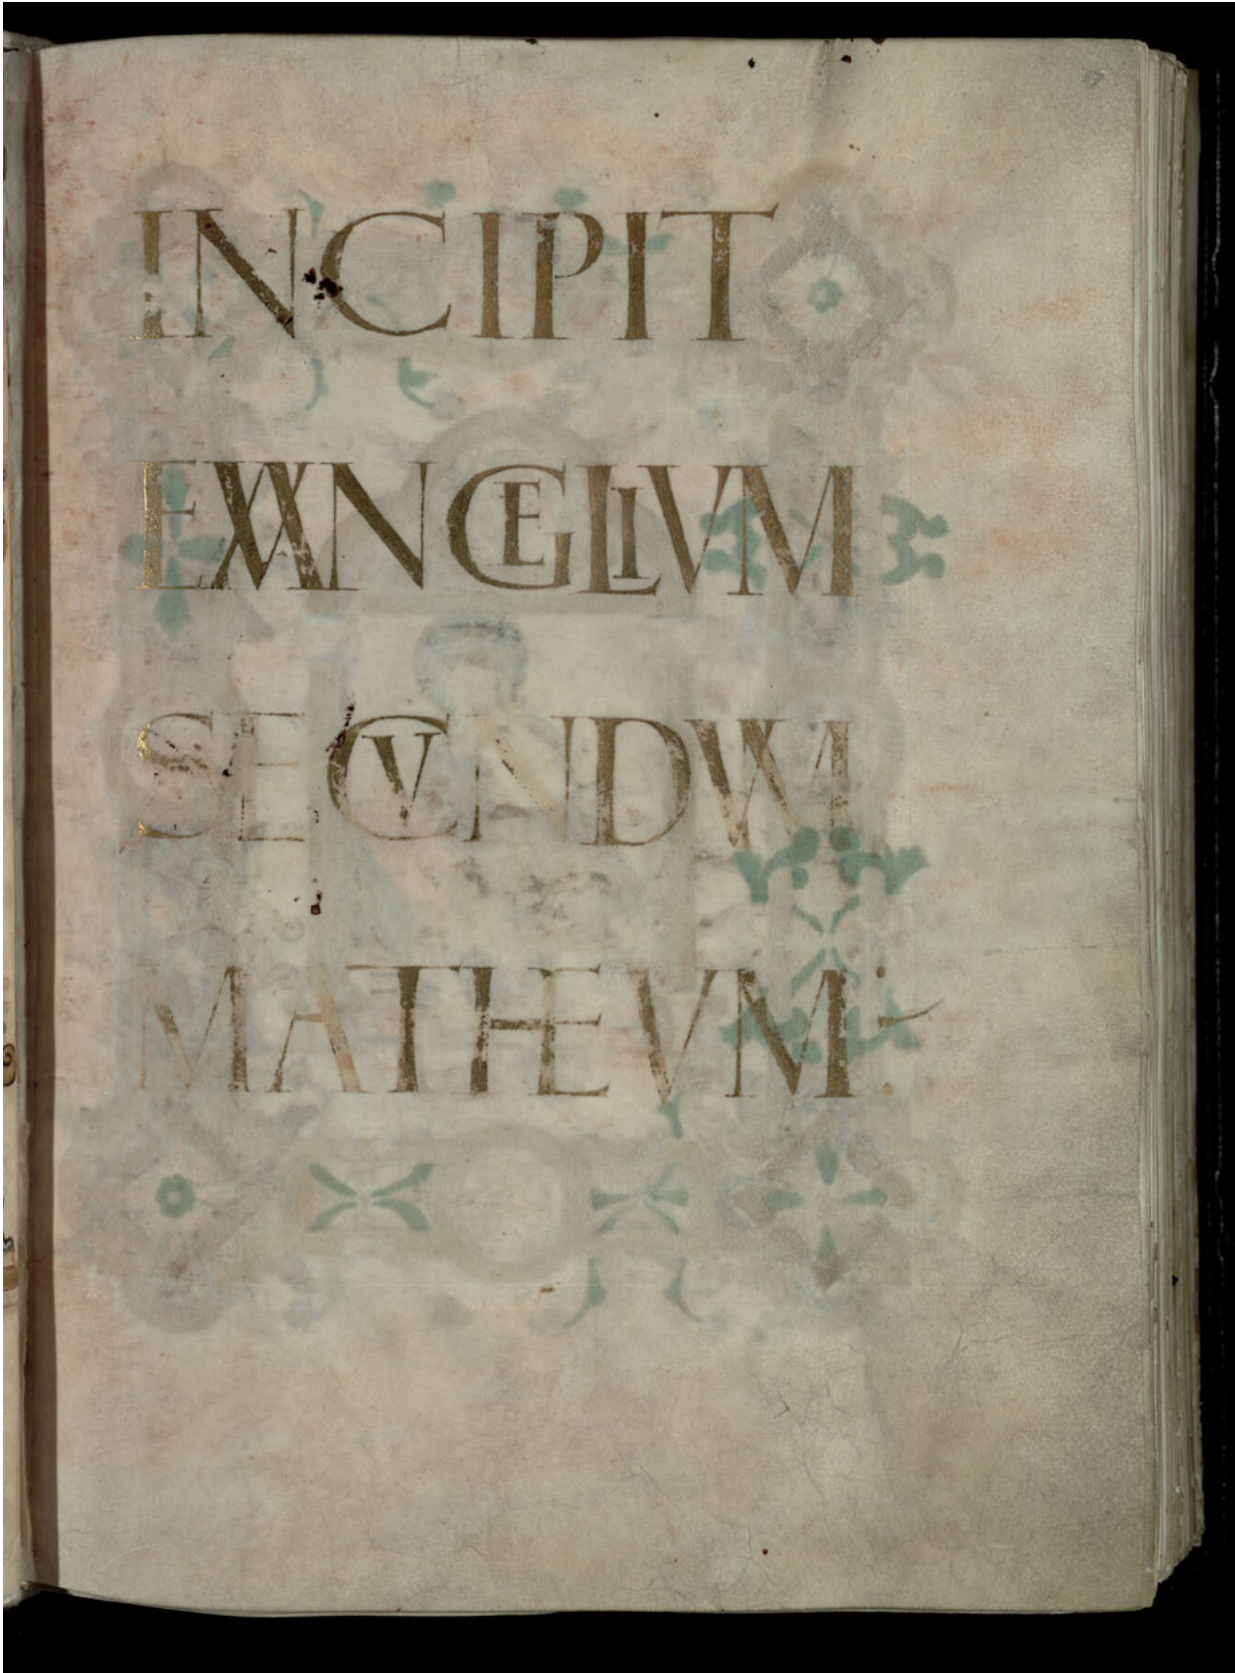 INCIPIT
EVANGELIVM
SECVNDVM
MATHEVM :-